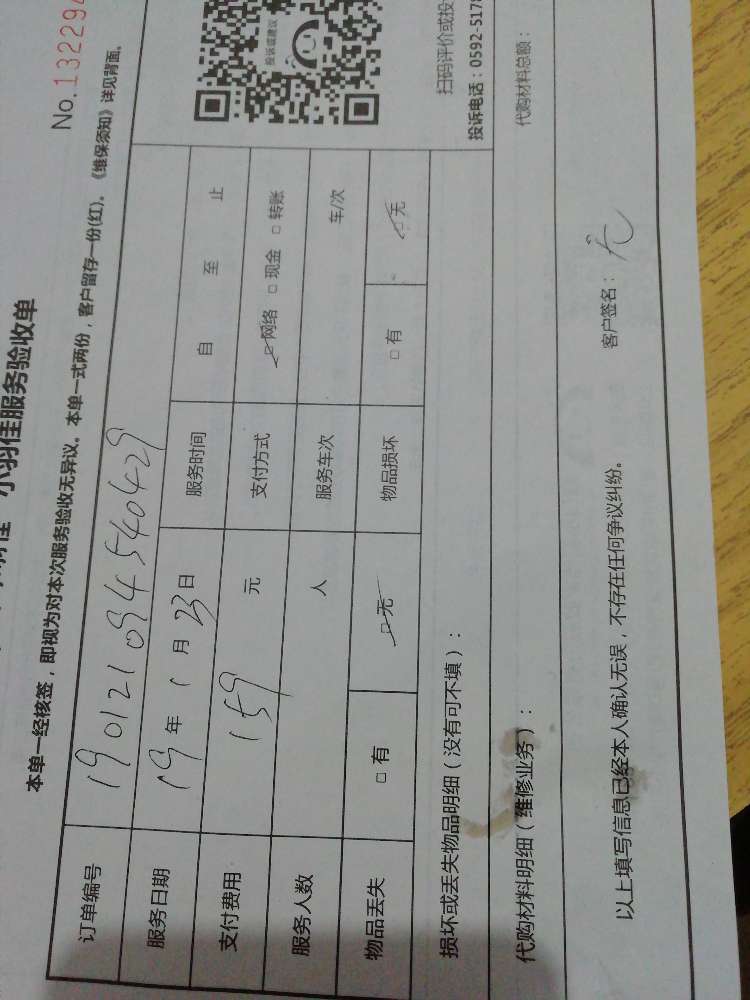 小羽佳服务验收单
No.132294
本单一经核签，即视为对本次服务验收无异议。本单一式两份，客户留存一份(红)。《维保须知》详见背面。
订单编号 190121094540429
服务日期 19年1月23日 服务时间 自 至 止
支付费用 159 元 支付方式 ☑网络 □现金 □转账
服务人数 人 服务车次 车/次
物品丢失 □有 ☑无 物品损坏 □有 ☑无
投诉或建议
扫码评价或投
投诉电话：0592-5178
损坏或丢失物品明细（没有可不填）：
代购材料明细（维修业务）： 代购材料总额：
以上填写信息已经本人确认无误，不存在任何争议纠纷。 客户签名：